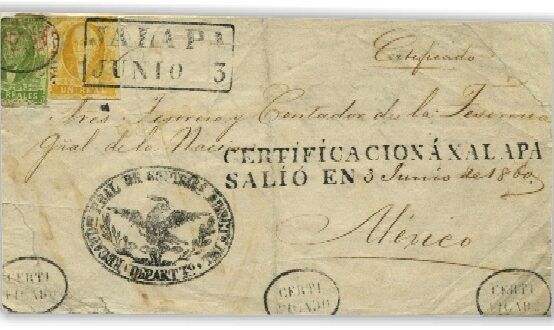 REALES
UN REAL
JALAPA
JUNIO 3
Certificado
Sres. Tesorero y Contador de la Tesoreria
Gral de la Nacion
CERTIFICACION Á XALAPA
SALIÓ EN 3 Junio de 1860
DEPARTTO.
México
CERTI
FICADO
CERTI
FICADO
CERTI
FICADO